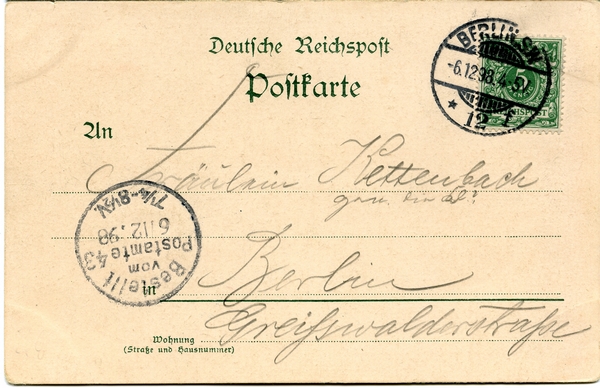 Deutsche Reichspost
Postkarte
BERLIN S.W.
-6.12.98. 4-5N.
* 12 f
5
An
Fräulein Kettenbach
Bestellt
vom
Postamte 43
6/12.98
7¼-8½N.
in Berlin
Greifswalderstraße
Wohnung
(Straße und Hausnummer)